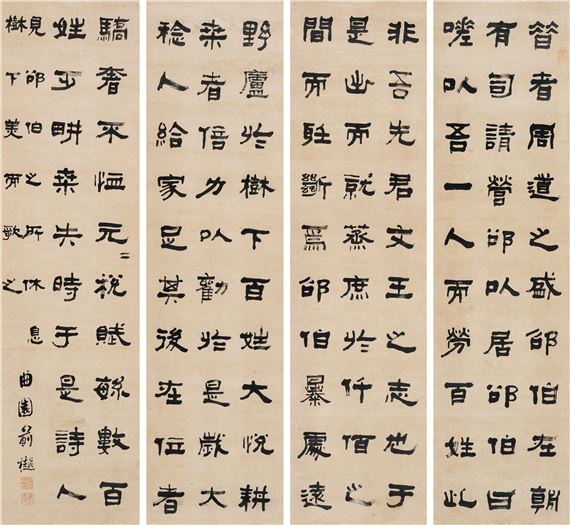 昔者周道之盛邵伯在朝
有司請營邵以居邵伯曰
嗟以吾一人而勞百姓此
非吾先君文王之志也于
是出而就蒸庶於仟佰之
間而聽斷焉邵伯暴處遠
野廬於樹下百姓大悅耕
桒者倍力以勸於是歲大
稔人給家足其後在位者
驕奢不恤元〻稅賦繁數百
姓乏耕桒失時于是詩人
見邵伯之所休息
樹下美而歌之
曲園俞樾